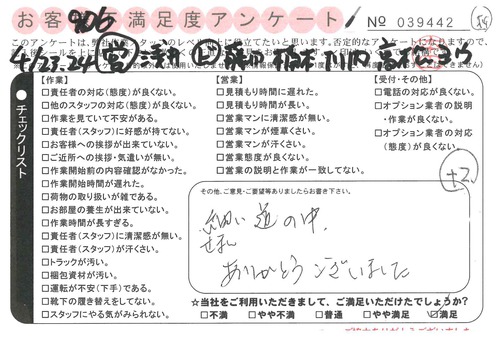 お客 906 不満足度アンケート
No 039442
4/23.24
【作業】
□責任者の対応(態度)が良くない。
□他のスタッフの対応(態度)が良くない。
□作業を見ていて不安がある。
□責任者(スタッフ)に好感が持てない。
□お客様への挨拶が出来ていない。
□ご近所への挨拶・気遣いが無い。
□作業開始前の内容確認がなかった。
□作業開始時間が遅れた。
□荷物の取り扱いが雑である。
□お部屋の養生が出来ていない。
□作業時間が長すぎる。
□責任者(スタッフ)に清潔感が無い。
□責任者(スタッフ)が汗くさい。
□トラックが汚い。
□梱包資材が汚い。
□運転が不安(下手)である。
□靴下の履き替えをしてない。
□スタッフにやる気がみられない。
チェックリスト
【営業】
□見積もり時間に遅れた。
□見積もり時間が長い。
□営業マンに清潔感が無い。
□営業マンが煙草くさい。
□営業マンが汗くさい。
□営業態度が良くない。
□営業の説明と作業が一致してない。
【受付・その他】
□電話の対応が良くない。
□オプション業者の説明
・作業が良くない。
□オプション業者の対応
(態度)が良くない。
+2
その他、ご意見・ご要望等ありましたらお書き下さい。
細い道の中、
せまい
ありがとうございました
☆当社をご利用いただきまして、ご満足いただけたでしょうか?
□不満 □やや不満 □普通 □やや満足 ☑満足